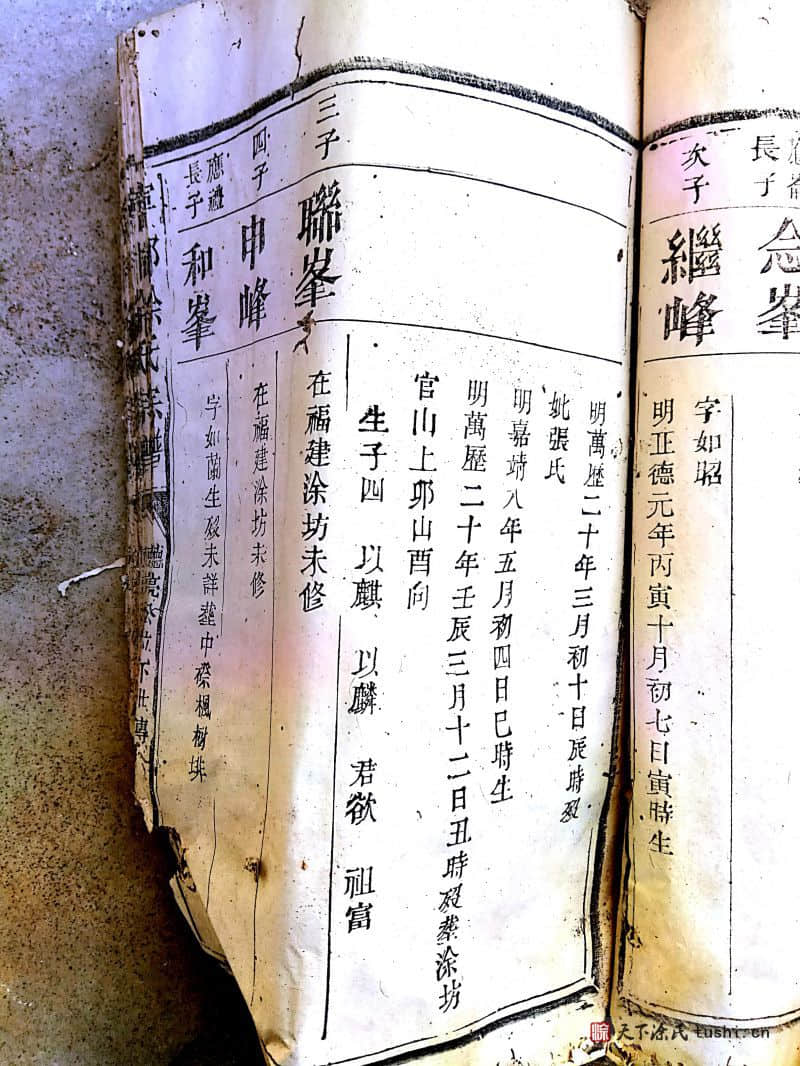 長子
念峯
次子
繼峰
字如昭
明正德元年丙寅十月初七日寅時生
明萬歷二十年三月初十日辰時殁
妣張氏
明嘉靖八年五月初四日巳時生
明萬歷二十年壬辰三月十二日丑時殁葬涂坊
官山上卯山酉向
生子四 以麒 以麟 君欲 祖富
三子
聯峯
在福建涂坊未修
四子
申峰
在福建涂坊未修
應
長子
和峯
字如蘭生殁未詳葬中磜楓樹排
涂氏宗譜
天下涂氏 tushi.cn